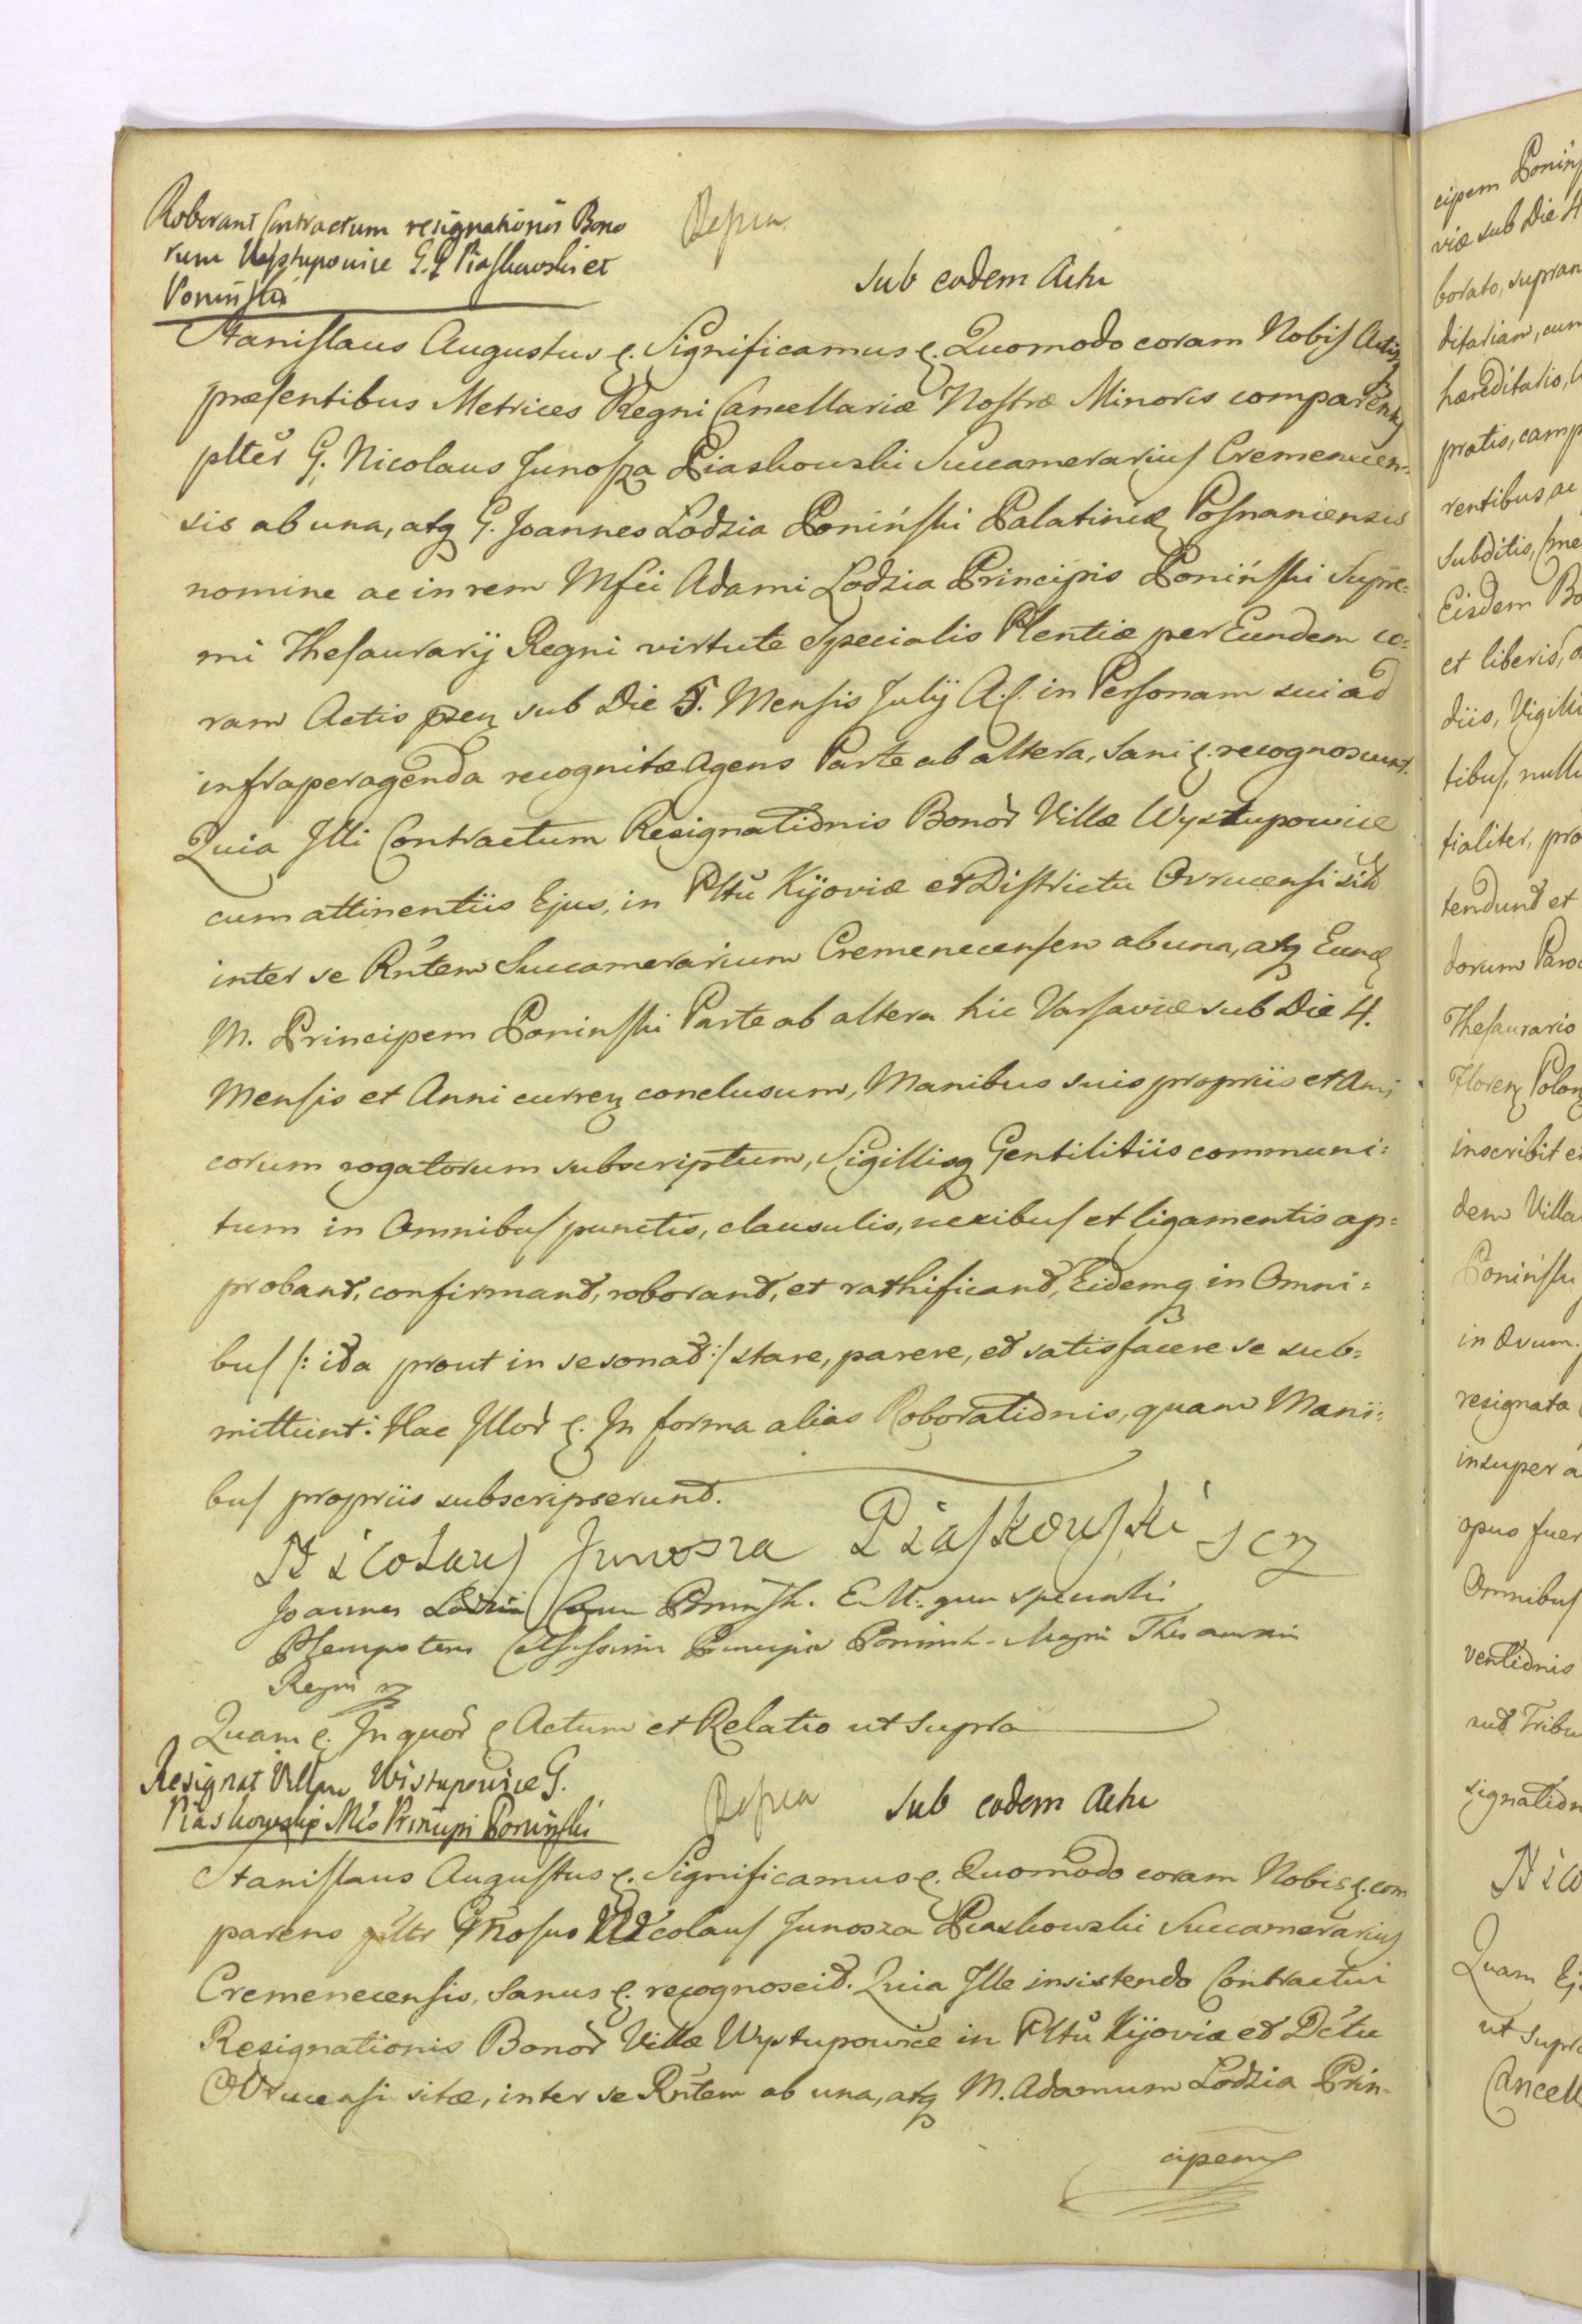 Roborant Contractum resignationis Bono
rum Wystupowice G. G. Piaskowski et
Poniński
Repca
Sub eodem Actu
Stanislaus Augustus &. Significamus &. Quomodo coram Nobis Actisq
præsentibus Metrices Regni Cancellariæ Nostræ Minoris comparentes
plter G. Nicolaus Junosza Piaskowski Succamerarius Cremenecen=
sis ab una, atq G. Joannes Lodzia Poniński Palatinidæ Posnaniensis
nomine ac in rem Mfci Adami Lodzia Principis Poniński Supre=
mi Thesaurarij Regni virtute specialis Plentiæ per Eundem co=
ram Actis psen sub Die 5. Mensis Julij A. C. in Personam sui ad
infraperagenda recognitæ Agens Parte ab altera, Sani &. recognoscunt.
Quia Illi Contractum Resignationis Bonor Villæ Wystupowice
cum attinentiis Ejus, in Pltu Kijoviæ et Districtu Ovrucensi sit
inter se Rntem Succamerarium Cremenecensem ab una, atq Eund
M. Principem Poninski Parte ab altera hic Varsaviæ sub Die 4.
Mensis et Anni curren conclusum, Manibus suis propriis et Ami
corum rogatorum subscriptum, Sigillisq Gentilitiis communi=
tum in Omnibus punctis, clausulis, nexibus et ligamentis ap=
probant, confirmant, roborant, et rathificant, Eidemq in Omni=
bus /: ita prout in se sonat :/ stare, parere, et satisfacere se sub=
mittunt: Hac Illor &. In forma alias Roborationis, quam Mani=
bus propriis subscripserunt.
Nicolaus Junosza Piaskowski SCK
Joannes Lodzia Poninsk. qua specialis
Plenipotens Celsissimi Principis Poninsk. Magni Thesaurarii
Regni
Quam &. In quor & Actum et Relatio ut Supra
Resignat Villam Wistupowice G.
Piaskowski Mco Principi Poniński
Repca
Sub eodem Actu
Stanislaus Augustus &. Significamus &. Quomodo coram Nobis &. com
parens plter Gnosus Nicolaus Junosza Piaskowski Succamerarius
Cremenecensis, Sanus &. recognoscit. Quia Ille insistendo Contractui
Resignationis Bonor Villæ Wystupowice in Pltu Kijoviæ et Dctu
Ovrucensi sitæ, inter se Rntem ab una, atq M. Adamum Lodzia Prin-
cipem
cipem Ponińs
viæ sub Die 4
borato, supran
ditariam, cum
hæreditario, l
pratis, camp
rentibus, ac
Subditis,
Eisdem Bo
et liberis, d
diis, Vigilli
tibus, nulli
tialiter, pro
tendunt et
dorum Paro
Thesaurario
Floren Polon
inscribit e
dem Villa
Poniński
in ævum.
resignata
insuper a
opus fuer
Omnibus
ventionis
Tribu
signation
Nico
Quam Ej
ut Supra
Cancell